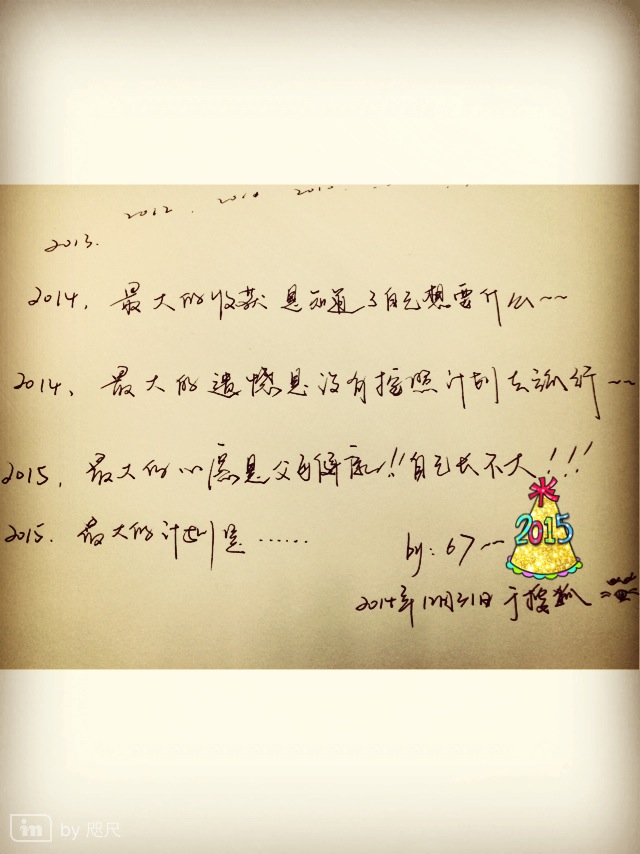 2012.
2013.
2014、最大的收获是知道了自己想要什么~~
2014、最大的遗憾是没有按照计划去旅行~~
2015、最大的心愿是父母健康!!自己长不大!!!
2015、最大的计划是……
by:67~~
2015
2014年12月31日于搜狐
in by 咫尺